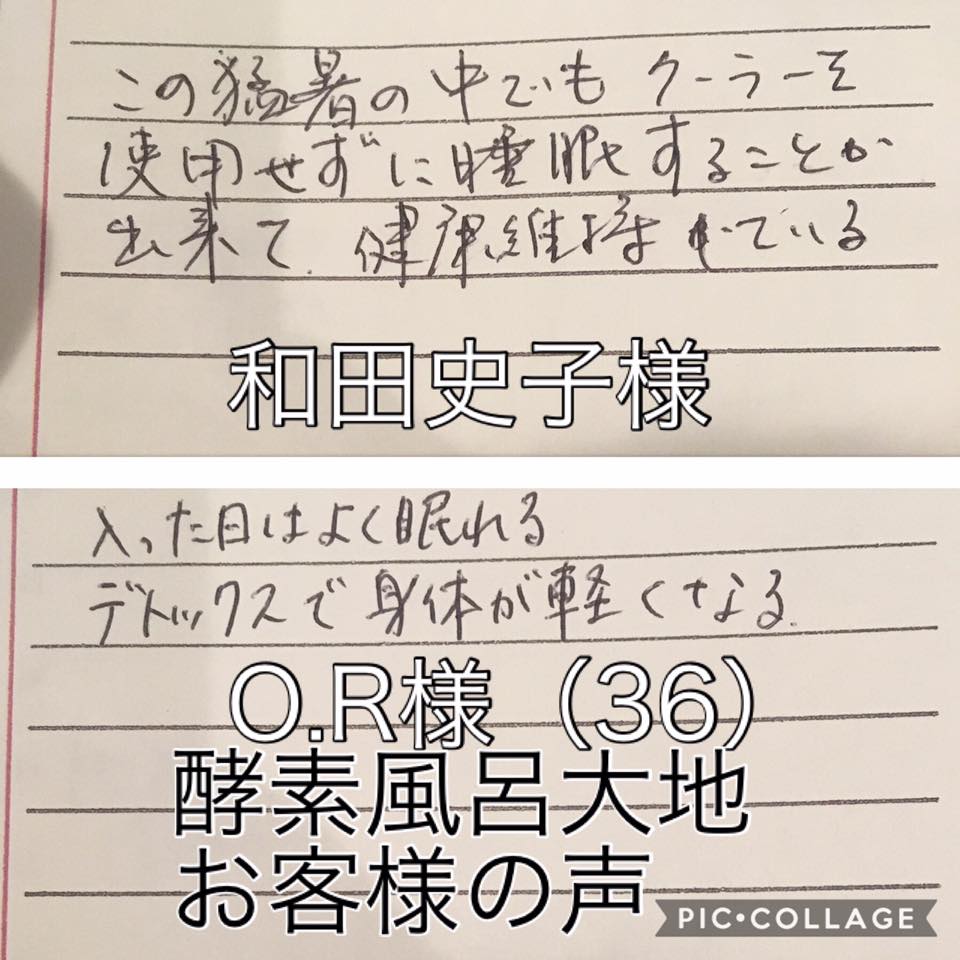 この猛暑の中でも クーラーを
使用せずに睡眠することが
出来て、健康維持している
和田史子様
入った日はよく眠れる
デトックスで身体が軽くなる.
O.R様（36）
酵素風呂大地
お客様の声
PIC•COLLAGE